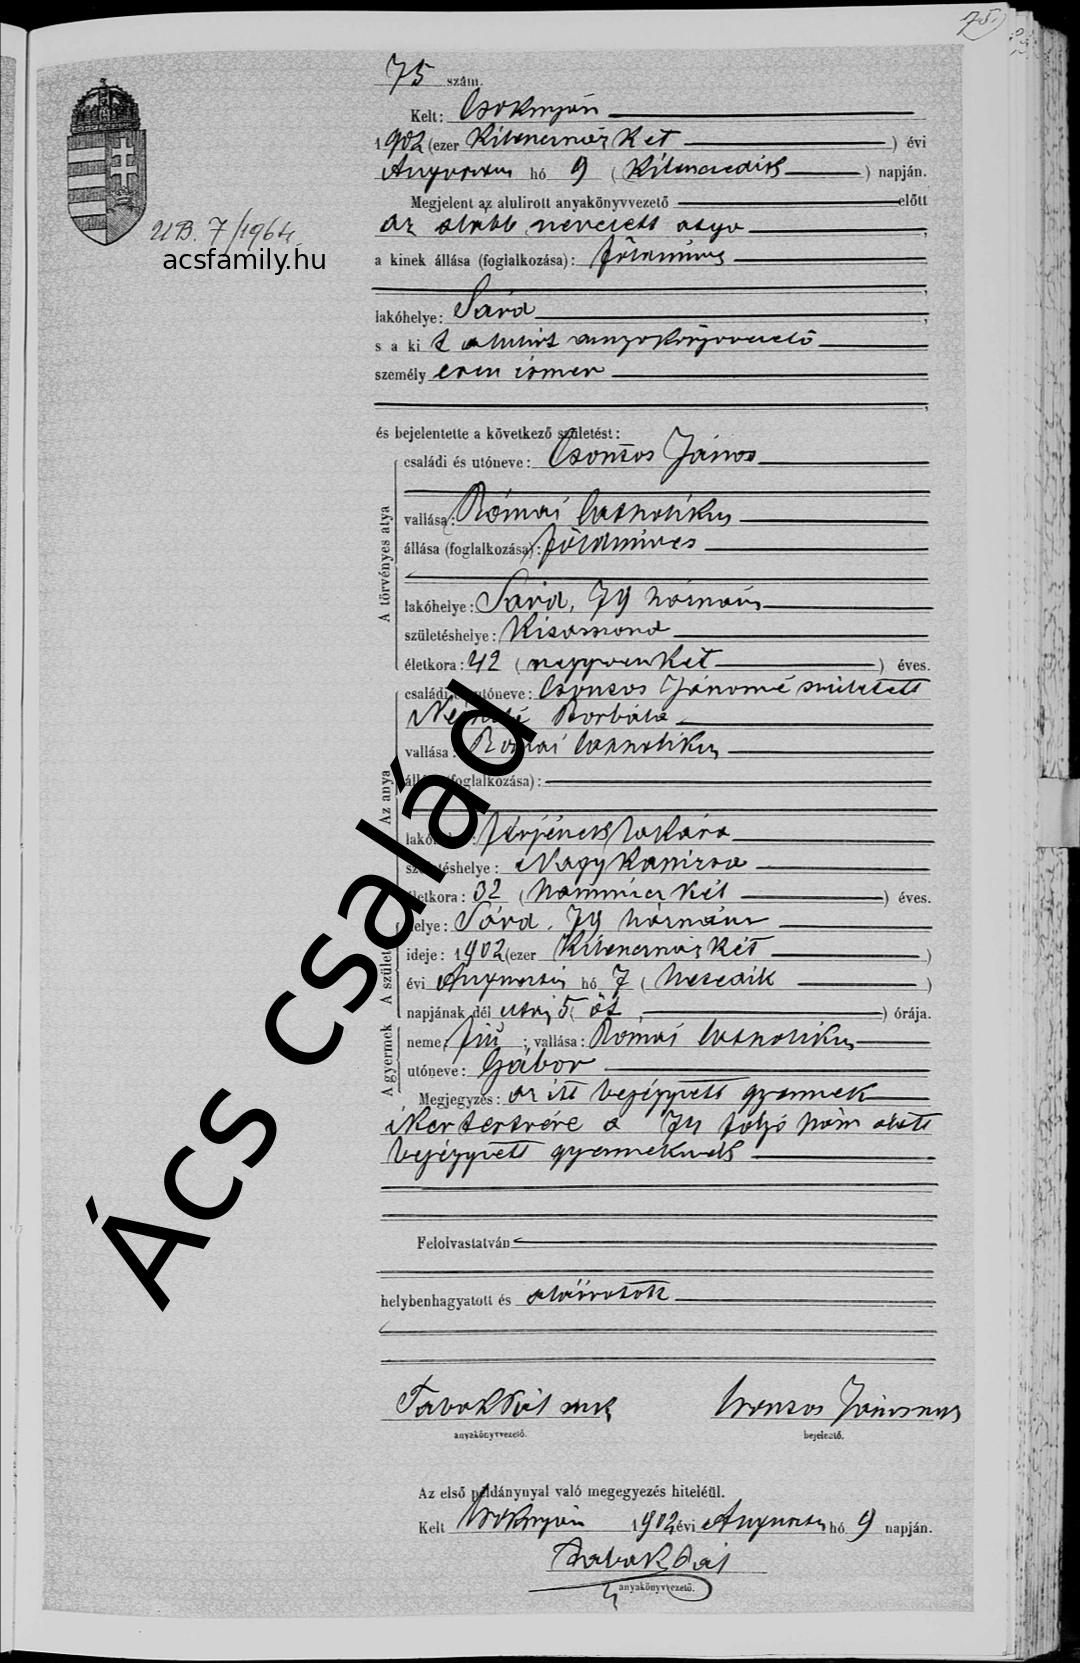 75.
75 szám.
Kelt: Csoknyán
1902 (ezer kilencszáz két ) évi
Augusztus hó 9 (kilencedik ) napján.
Megjelent az alulirott anyakönyvvezető előtt
az alább nevezett atya ,
U.B. 7/1964.
acsfamily.hu
a kinek állása (foglalkozása): földmíves
lakóhelye: Sárd ,
s a ki t alulirt anyakönyvvezető
személyesen ismer
és bejelentette a következő születést:
A törvényes atya
családi és utóneve: Csonzos János
vallása: Római katholikus
állása (foglalkozása): földmives
lakóhelye: Sárd, 79 házszám
születéshelye: Kisasszond
életkora: 42 (negyvenkét ) éves.
Az anya
családi és utóneve: Csonzos Jánosné született
Borbála
vallása: Római katholikus
állása (foglalkozása):
lakóhelye: férjénék lakása
születéshelye: Nagykanizsa
életkora: 32 (harminczkét ) éves.
A születés
helye: Sárd, 79 házszám
ideje: 1902 (ezer kilencszáz két )
évi Augusztus hó 7 (hetedik )
napjának dél után 5, öt ) órája.
A gyermek
neme: fiú ; vallása: Római katholikus
utóneve: Gábor
Megjegyzés: az itt bejegyzett gyermek
ikertestvére a 74 folyó szám alatt
bejegyzett gyermeknek
Felolvastatván
helybenhagyatott és aláiratott
Tabak Pál mk Csonzos Jánosmk
anyakönyvvezető. bejelentő.
Az első példánynyal való megegyezés hiteléül.
Kelt Csoknyán 1902 évi Augusztus hó 9 napján.
Tabak Pál
anyakönyvvezető.
Ács család